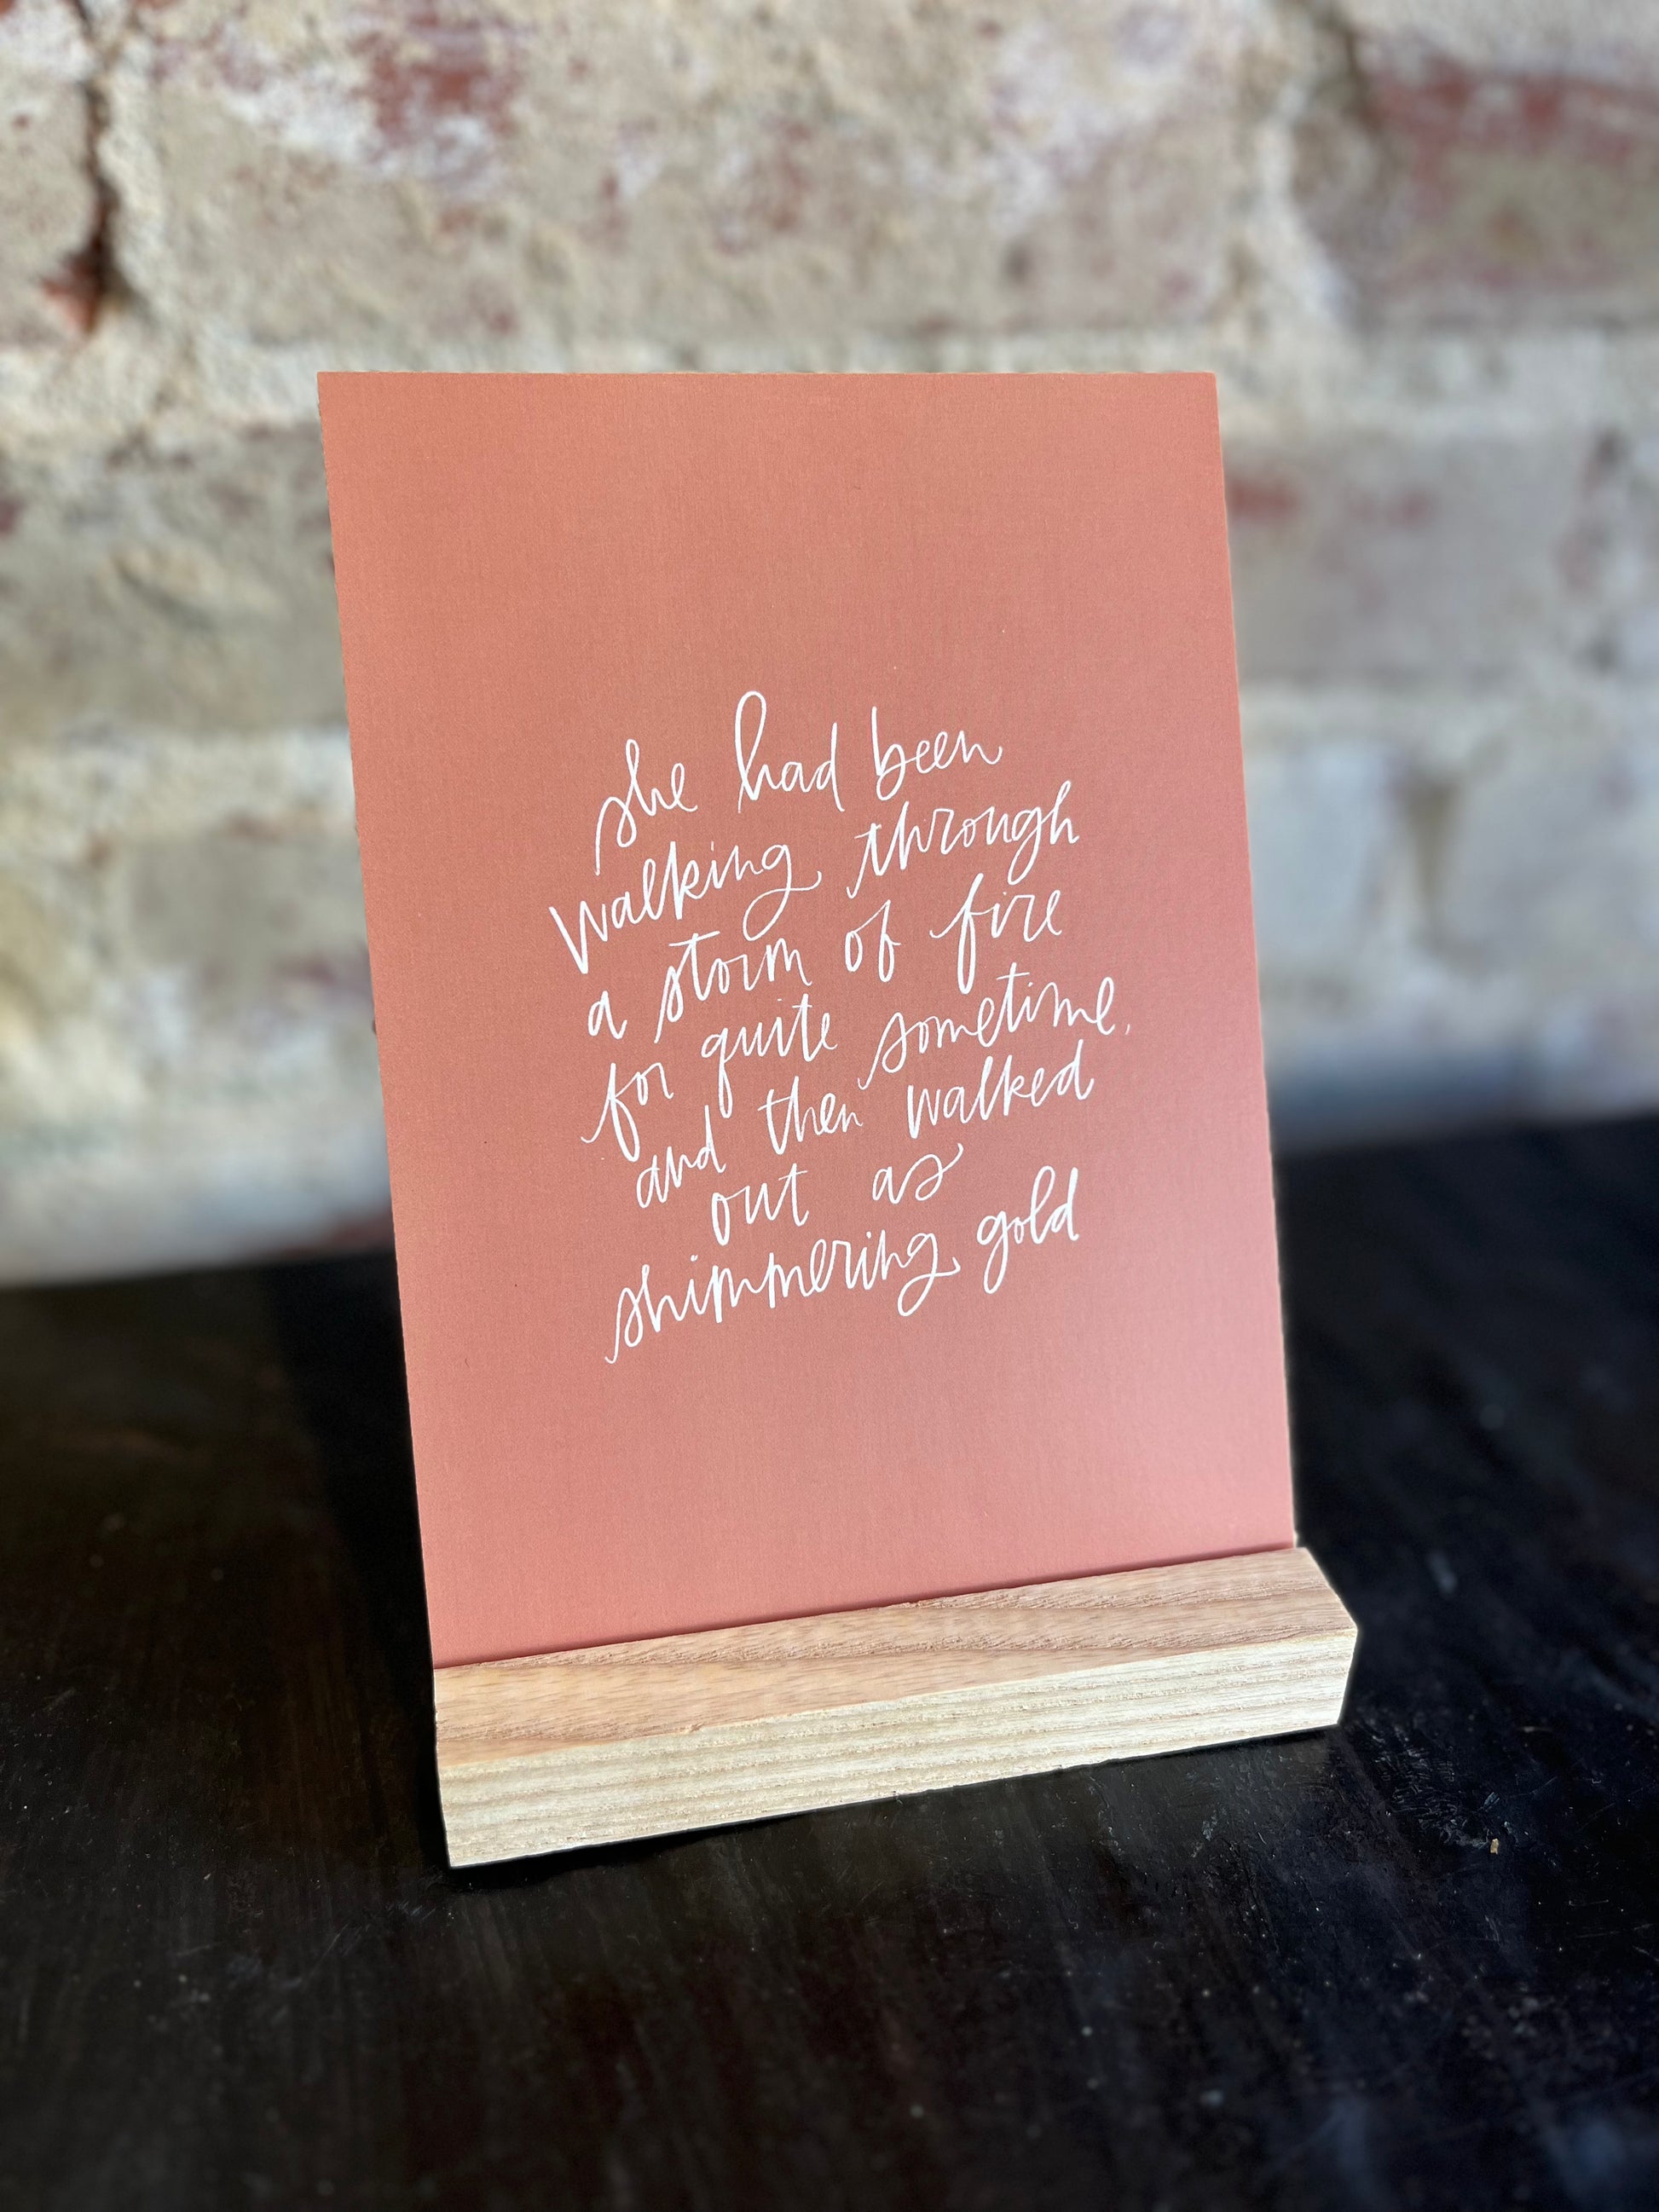 she had been
walking through
a storm of fire
for quite sometime,
and then walked
out as
shimmering gold